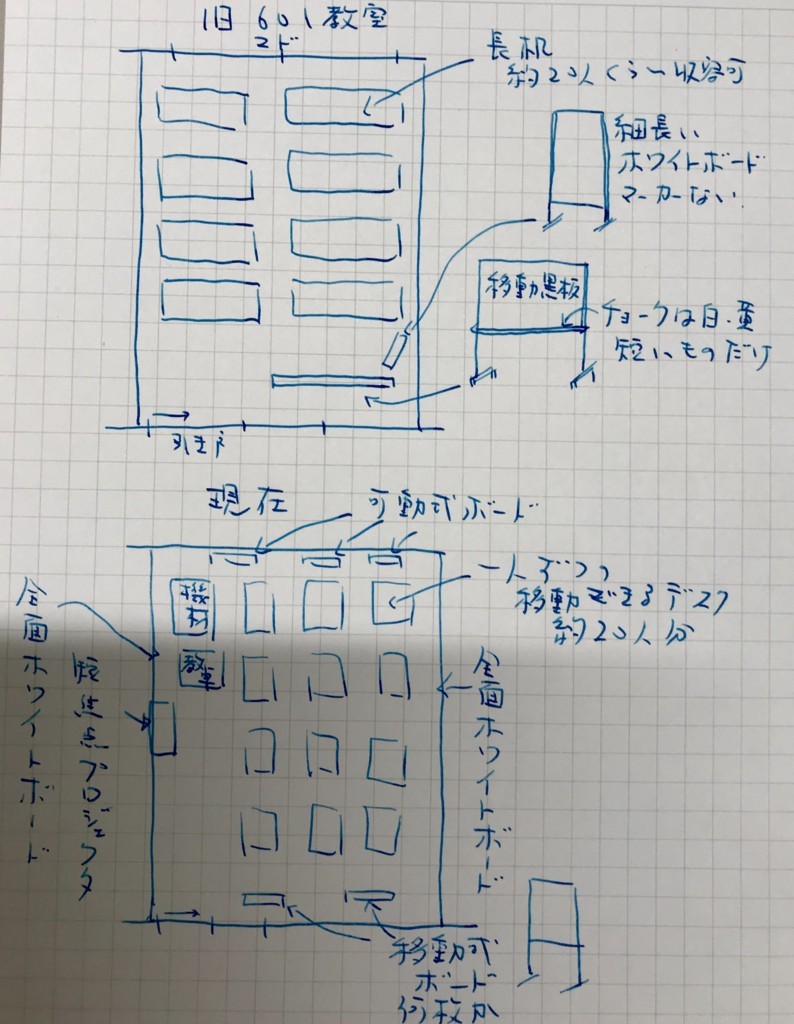 旧601教室
マド
長机
約20人くらい収容可
細長い
ホワイトボード
マーカーない
移動黒板
チョークは白・黄
短いものだけ
引き戸
現在
可動式ボード
一人ずつの
移動できるデスク
約20人分
機材
教卓
全面ホワイトボード
短焦点プロジェクタ
全面ホワイトボード
移動式
ボード
何枚か